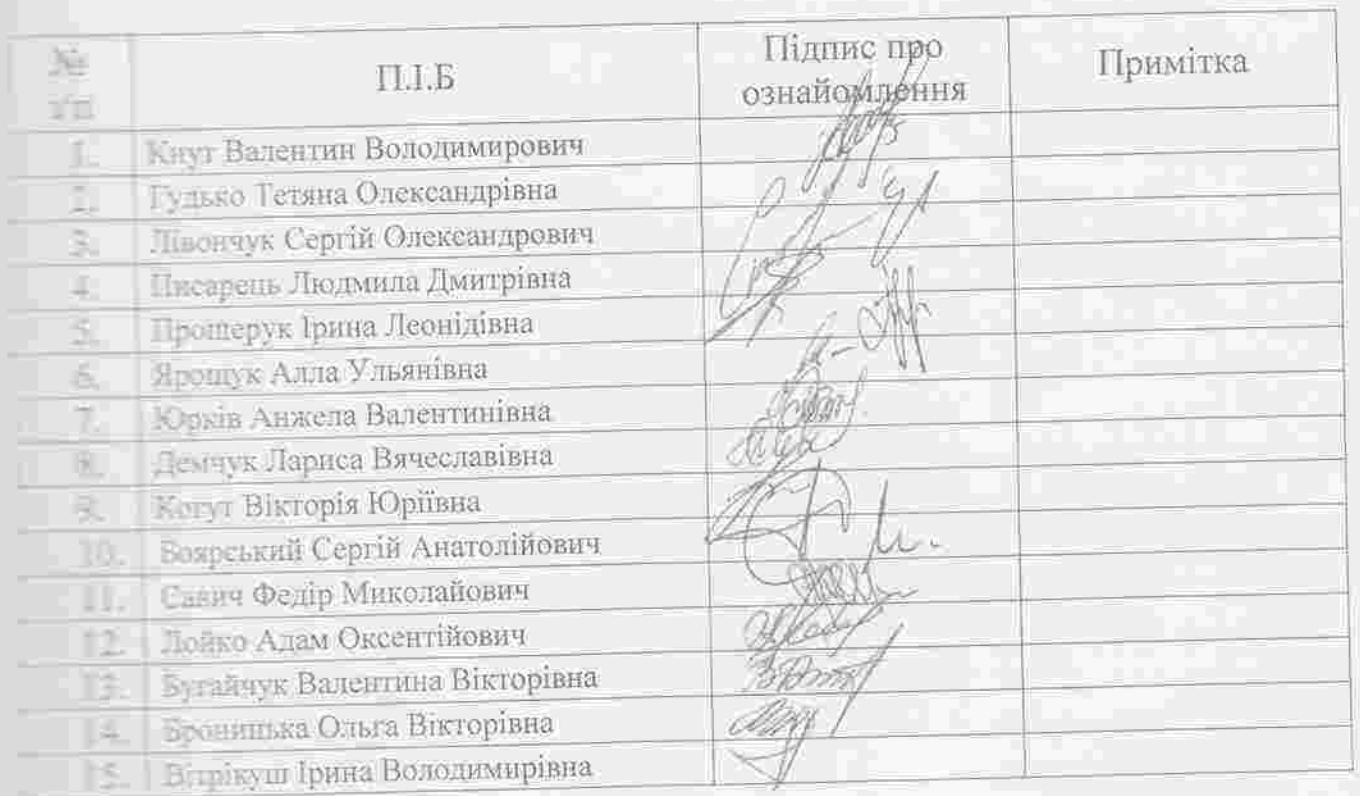 № П.І.Б Підпис про ознайомлення Примітка
з/п
1. Кнут Валентин Володимирович
2. Гудько Тетяна Олександрівна
3. Лівончук Сергій Олександрович
4. Писарець Людмила Дмитрівна
5. Прощерук Ірина Леонідівна
6. Ярощук Алла Ульянівна
7. Юрків Анжела Валентинівна
8. Демчук Лариса Вячеславівна
9. Когут Вікторія Юріївна
10. Боярський Сергій Анатолійович
11. Савич Федір Миколайович
12. Лойко Адам Оксентійович
13. Бугайчук Валентина Вікторівна
14. Броницька Ольга Вікторівна
15. Вітрікуш Ірина Володимирівна